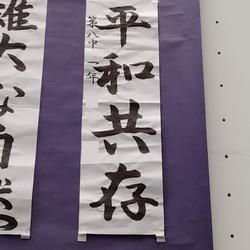 平和共存
第八中 一年
雄大な自然